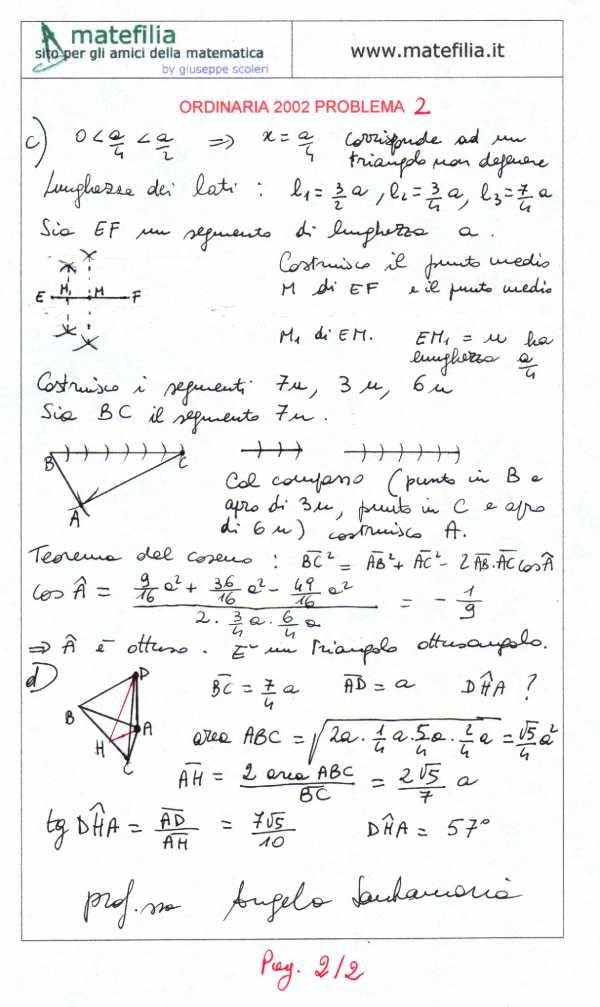 matefilia
sito per gli amici della matematica
by giuseppe scoleri
www.matefilia.it
ORDINARIA 2002 PROBLEMA 2
c) 0 < a/4 < a/2 ⇒ x = a/4 corrisponde ad un
triangolo non degenere
Lunghezza dei lati : l₁ = 3/2 a , l₂ = 3/4 a, l₃ = 7/4 a
Sia EF un segmento di lunghezza a .
Costruisco il punto medio
M di EF e il punto medio
E M₁ M F
M₁ di EM. EM₁ = u ha
lunghezza a/4
Costruisco i segmenti 7u, 3u, 6u
Sia BC il segmento 7u .
B C
A
Col compasso (punto in B e
apro di 3u, punto in C e apro
di 6u) costruisco A.
Teorema del coseno : BC² = AB² + AC² - 2 AB·AC cos Â
cos Â = (9/16 a² + 36/16 a² - 49/16 a²) / (2 · 3/4 a · 6/4 a) = - 1/9
⇒ Â è ottuso . E' un triangolo ottusangolo.
d) BC = 7/4 a AD = a DĤA ?
D
B
A
H
C
area ABC = √(2a · 1/4 a · 5/4 a · 2/4 a) = √5/4 a²
AH = 2 area ABC / BC = 2√5/7 a
tg DĤA = AD/AH = 7√5/10 DĤA = 57°
prof.ssa Angela Santamaria
Pag. 2/2